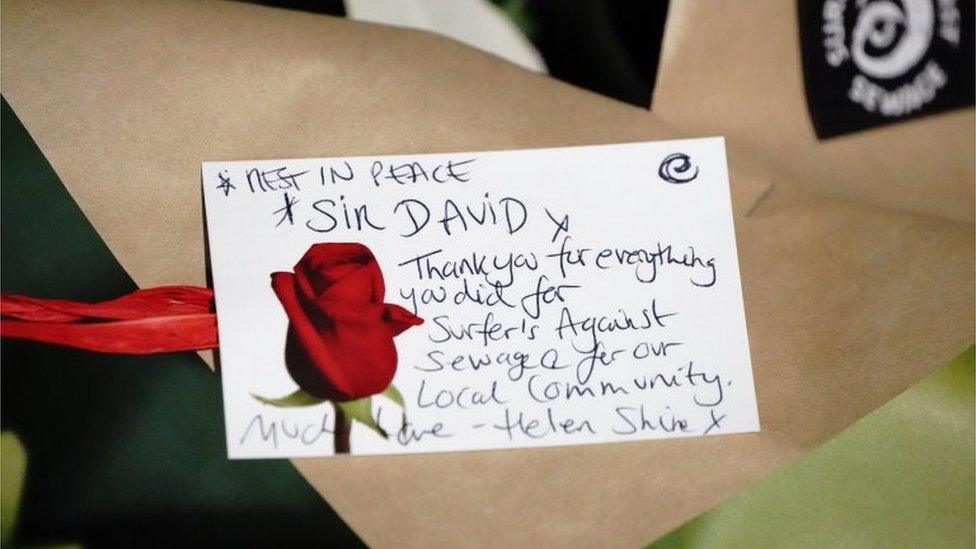 SURF
ST
SEWAGE
* REST IN PEACE
* SIR DAVID x
Thank you for everything
you did for
Surfer's Against
Sewage & for our
Local Community.
Much Love - Helen Shine x